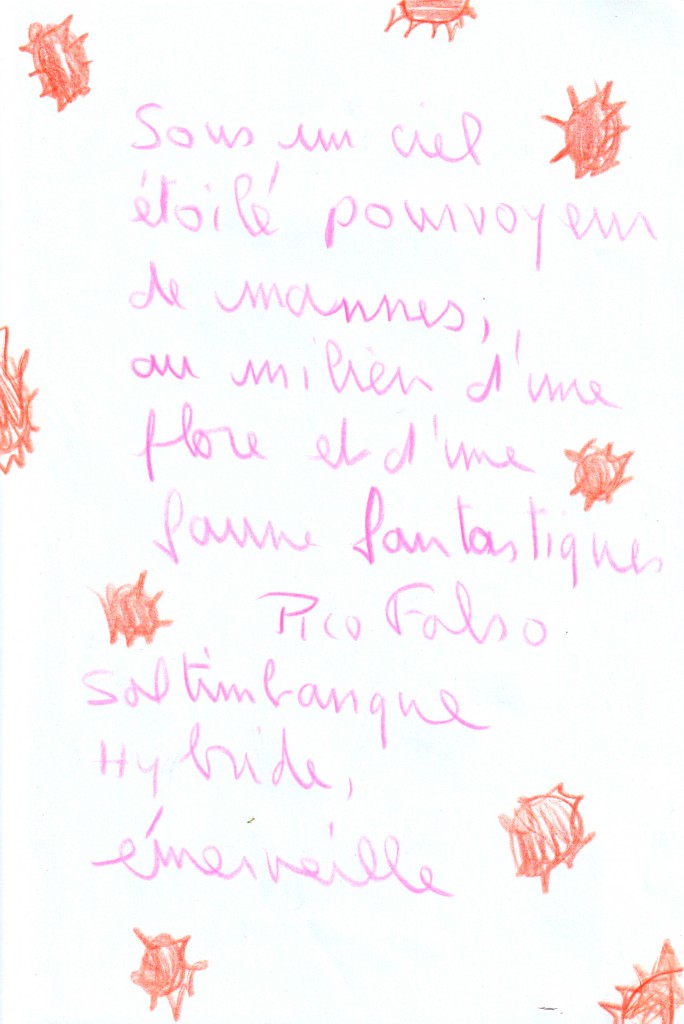 Sous un ciel
étoilé pourvoyeur
de mannes,
au milieu d'une
flore et d'une
faune fantastiques
Pico Falso
Saltimbanque
Hybride,
émerveille